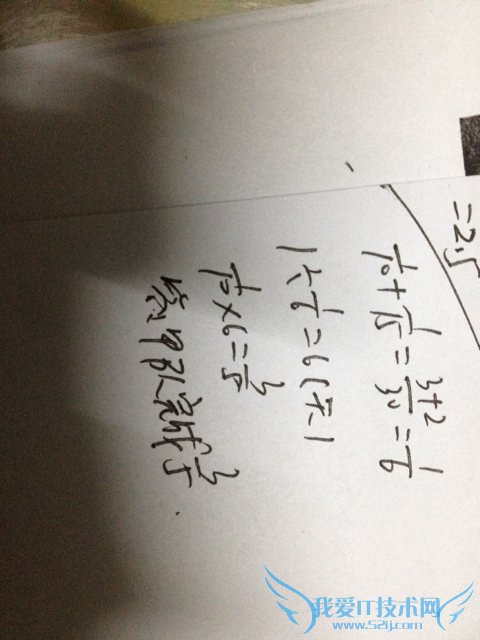 =2.5
1/10+1/15=3+2/30=1/6
1÷1/6=6(天)
1/10×6=3/5
答:甲队完成了3/5.
我爱IT技术网
www.52ij.com